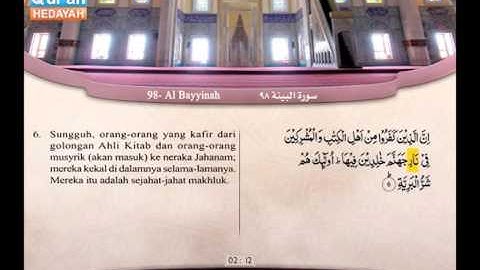 Qur'an
HEDAYAH
98- Al Bayyinah
سورة البينة ٩٨
6. Sungguh, orang-orang yang kafir dari
golongan Ahli Kitab dan orang-orang
musyrik (akan masuk) ke neraka Jahanam;
mereka kekal di dalamnya selama-lamanya.
Mereka itu adalah sejahat-jahat makhluk.
اِنَّ الَّذِيْنَ كَفَرُوْا مِنْ اَهْلِ الْكِتٰبِ وَالْمُشْرِكِيْنَ
فِيْ نَارِ جَهَنَّمَ خٰلِدِيْنَ فِيْهَا ؕ اُولٰٓئِكَ هُمْ
شَرُّ الْبَرِيَّةِ
02 : 12